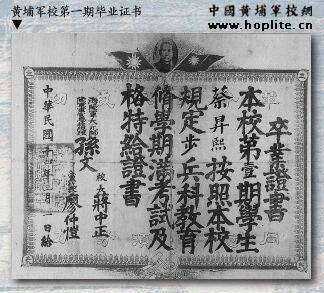 黄埔军校第一期毕业证书
中國黃埔軍校網
www.hoplite.cn
卒業證書
本校第壹期學生
蔡昇熙按照本校
規定步兵科教育
修學期滿考試及
格特給證書
孫文
校長
蔣中正
廖仲愷
中華民國十三年
月
日給